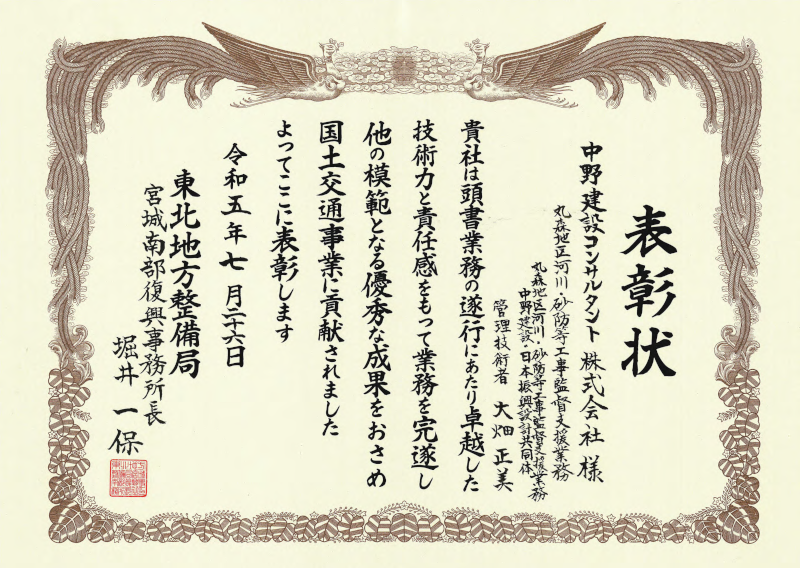 表彰状
中野建設コンサルタント株式会社 様
丸森地区河川・砂防等工事監督支援業務
丸森地区河川・砂防等工事監督支援業務
中野建設・日本振興設計共同体
管理技術者 大畑正美
貴社は頭書業務の遂行にあたり卓越した
技術力と責任感をもって業務を完遂し
他の模範となる優秀な成果をおさめ
国土交通事業に貢献されました
よってここに表彰します
令和五年七月二十六日
東北地方整備局
宮城南部復興事務所長
堀井一保